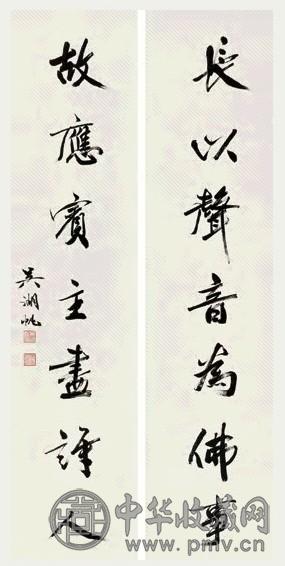 長以聲音為佛事
故應賓主盡詩人
吳湖帆
中华收藏网
www.pmv.cn